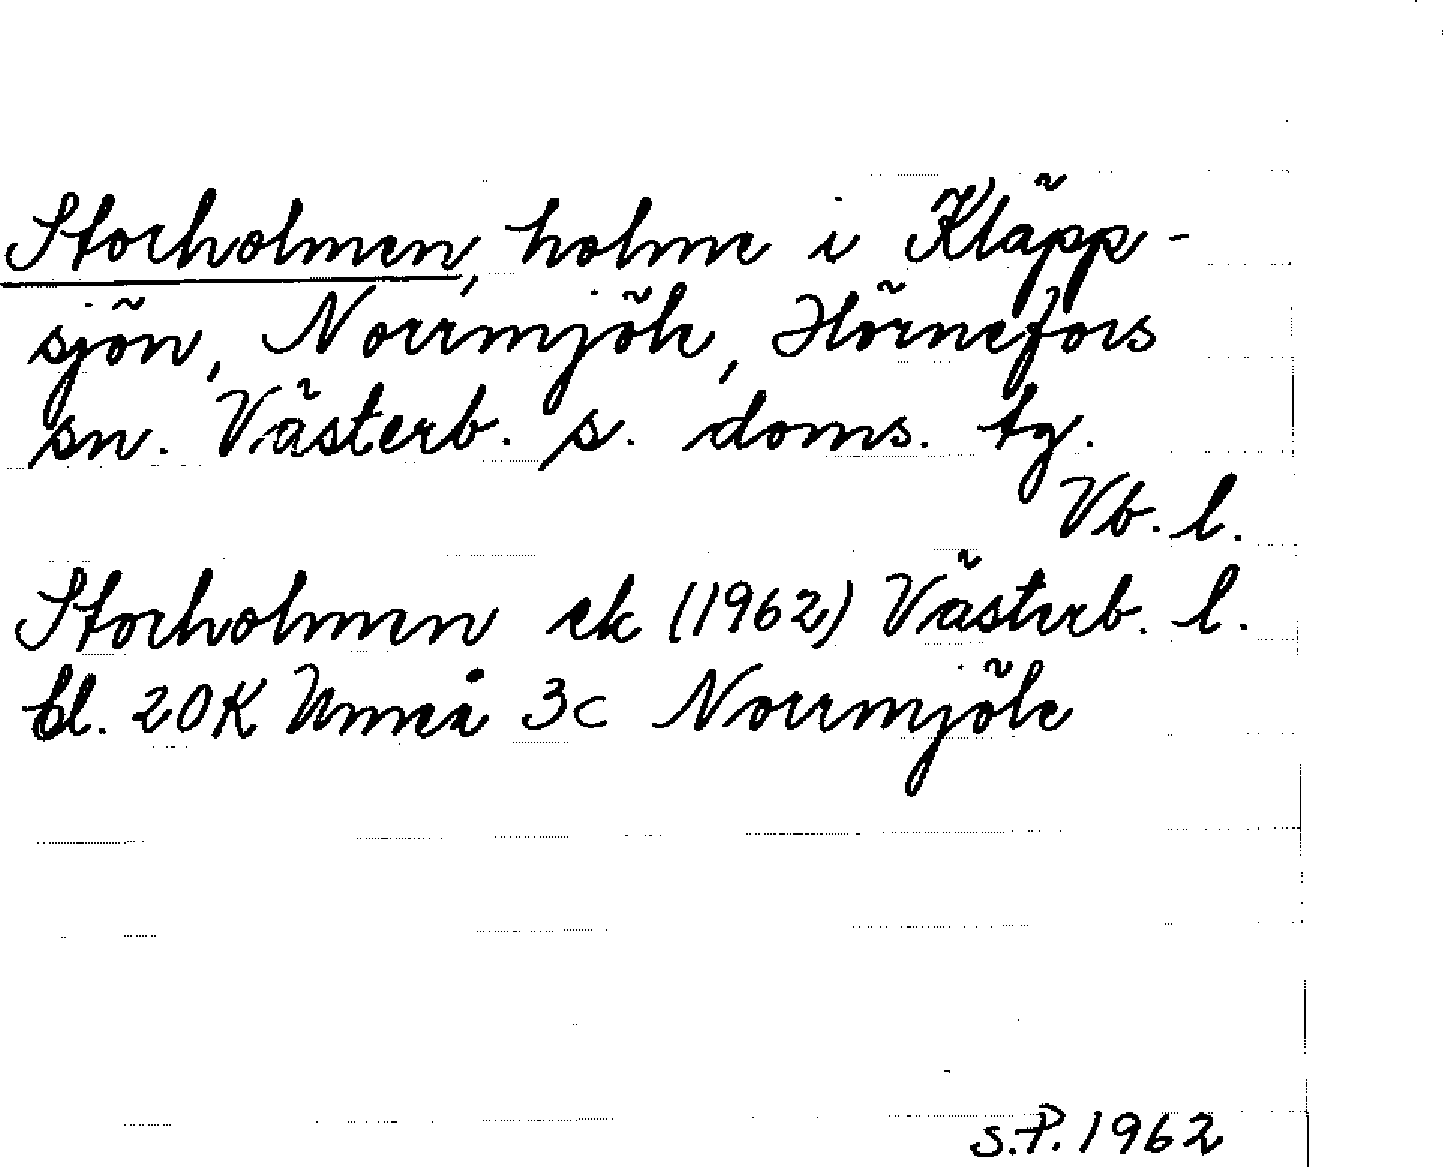 Storholmen, holme i Kläpp-
sjön, Norrmjöle, Hörnefors
sn. Västerb. s. doms. tg.
Vb. l.
Storholmen ek (1962) Västerb. l.
bl. 20K Umeå 3c Norrmjöle
S.P. 1962